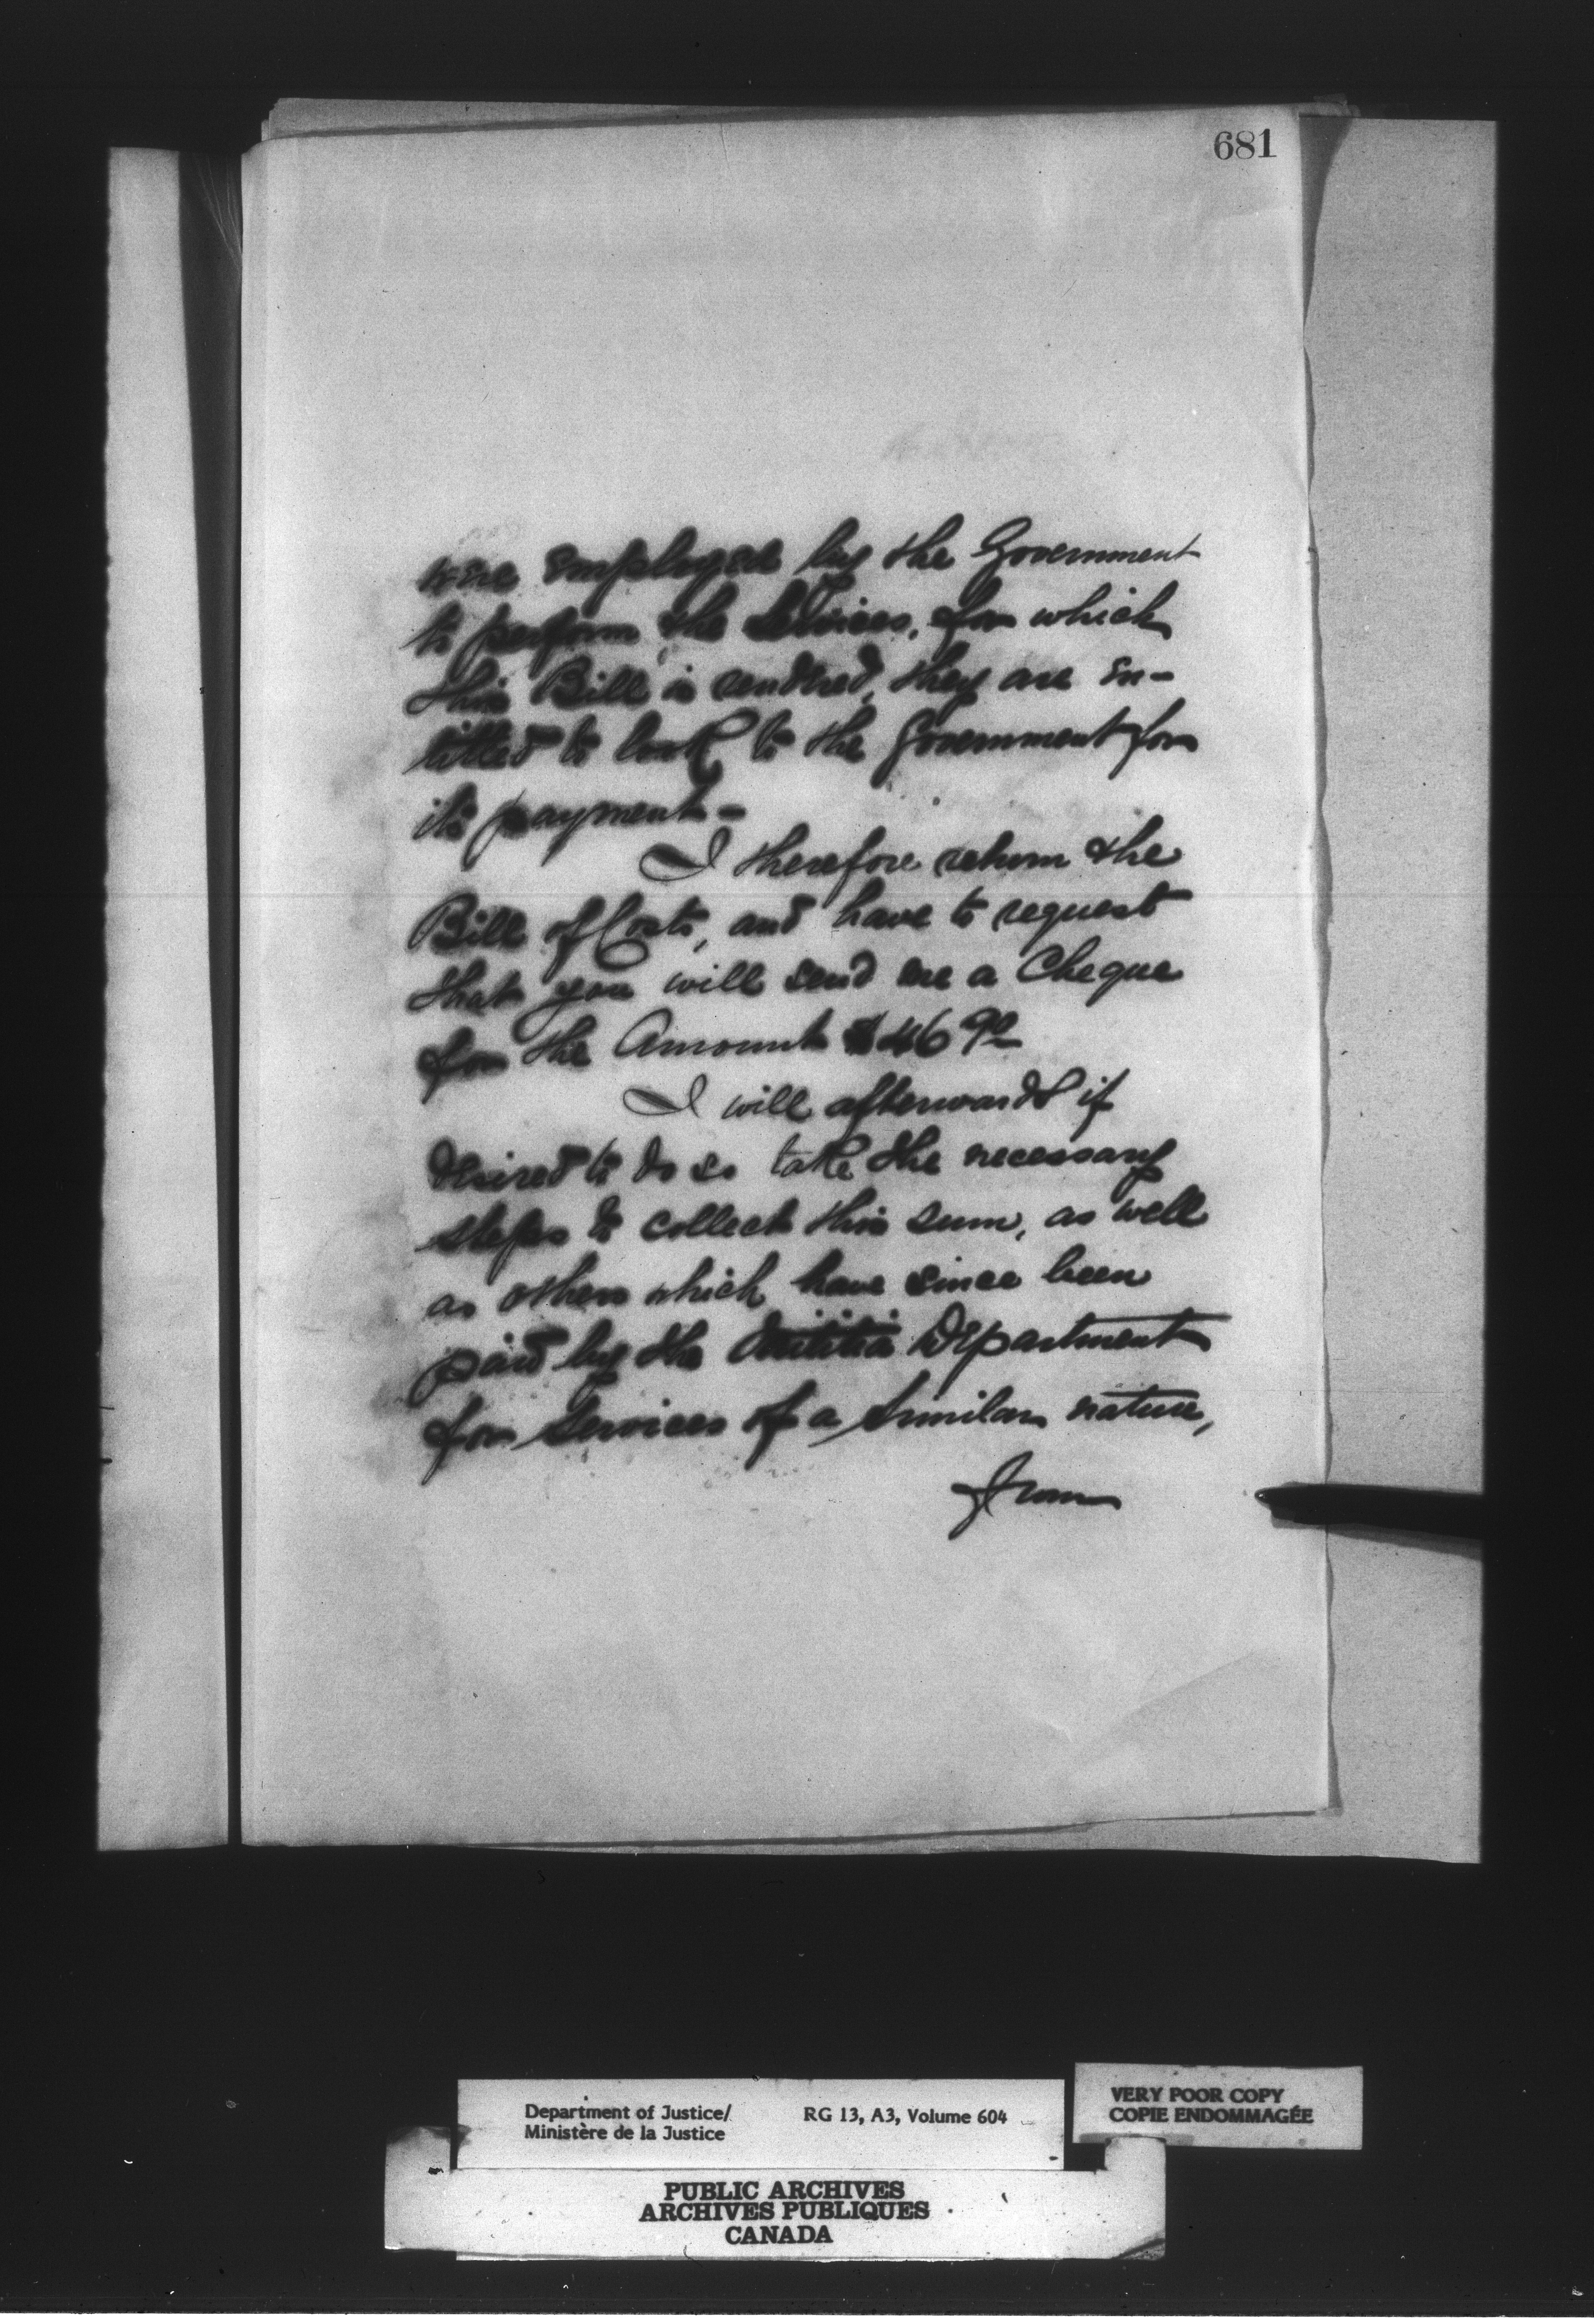 681
were employed by the Government
to perform the Services, for which
this Bill is rendered, they are en-
titled to look to the Government for
its payment -
I therefore return the
Bill of Costs, and have to request
that you will send me a Cheque
for the Amount $46 90
I will afterwards if
desired to do so take the necessary
steps to collect this sum, as well
as others which have since been
paid by the Militia Department
for Services of a Similar nature,
from
Department of Justice/ RG 13, A3, Volume 604
Ministère de la Justice
VERY POOR COPY
COPIE ENDOMMAGÉE
PUBLIC ARCHIVES
ARCHIVES PUBLIQUES
CANADA